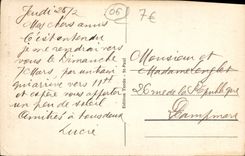 Jeudi 28/2
(06)
7€
Mes chers amis
C'est entendu
je me rendrai vers
vous le Dimanche
Mars, par un train
qui arrive vers 11h
et espère vous apporter
un peu de soleil
Amitiés à tous deux
Lucie
Monsieur et
Madame
26 rue de la République
Dampmart
Edition